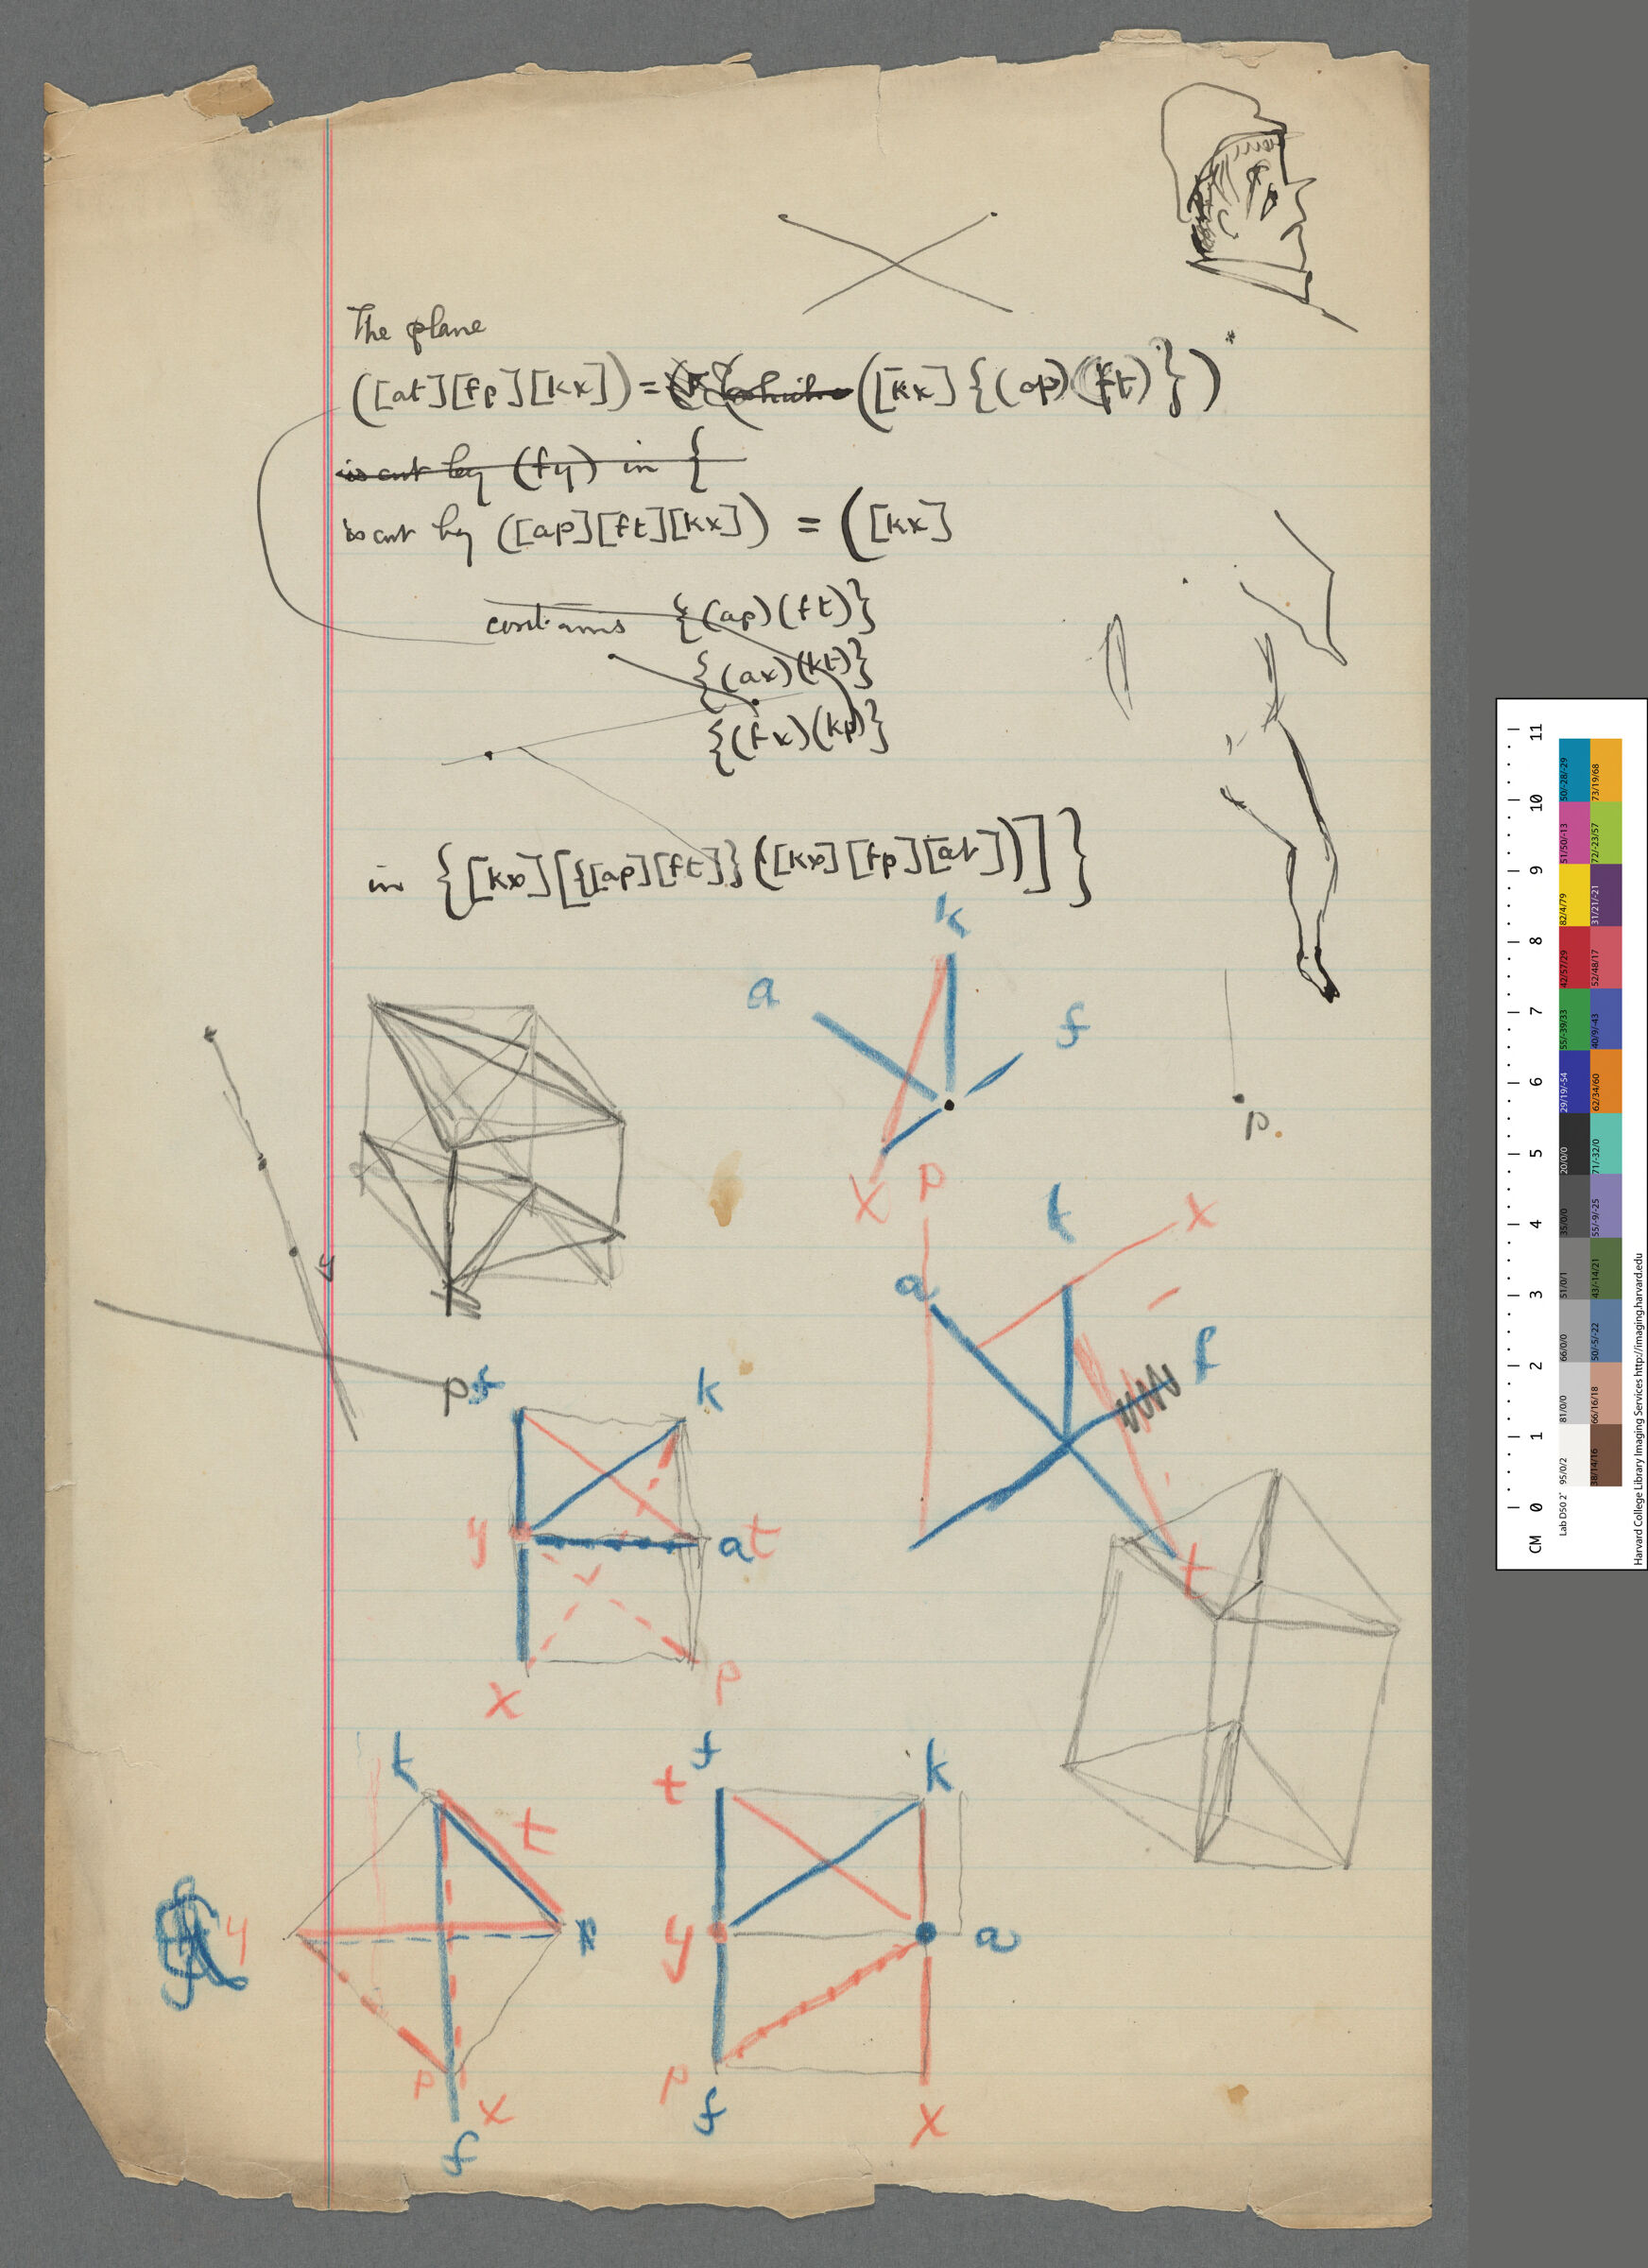 The plane
([at][fp][kx]) = ([kx]{(ap)(ft)})
is cut by (fy) in {
is cut by ([ap][ft][kx]) = ([kx]
contains {(ap)(ft)}
{(ax)(kt)}
{(fx)(kp)}
in {[kx][{[ap][ft]}([kx][fp][at])]}
k
a
f
p
x p
k x
a
y
f
p f k
t
y a t
x p
k f k
t t
y y a
p p
x f x
f
CM 0 1 2 3 4 5 6 7 8 9 10 11
Lab D50 2° 95/0/2 81/0/0 66/0/0 51/0/1 35/0/0 20/0/0 29/19/-54 55/-39/33 42/57/29 82/4/79 51/50/-13 50/-28/-29
38/14/16 66/16/18 50/-5/-22 43/-14/21 55/-9/-25 71/-32/0 62/34/60 40/9/-43 52/48/17 31/21/-21 72/-23/57 73/19/68
Harvard College Library Imaging Services http://imaging.harvard.edu